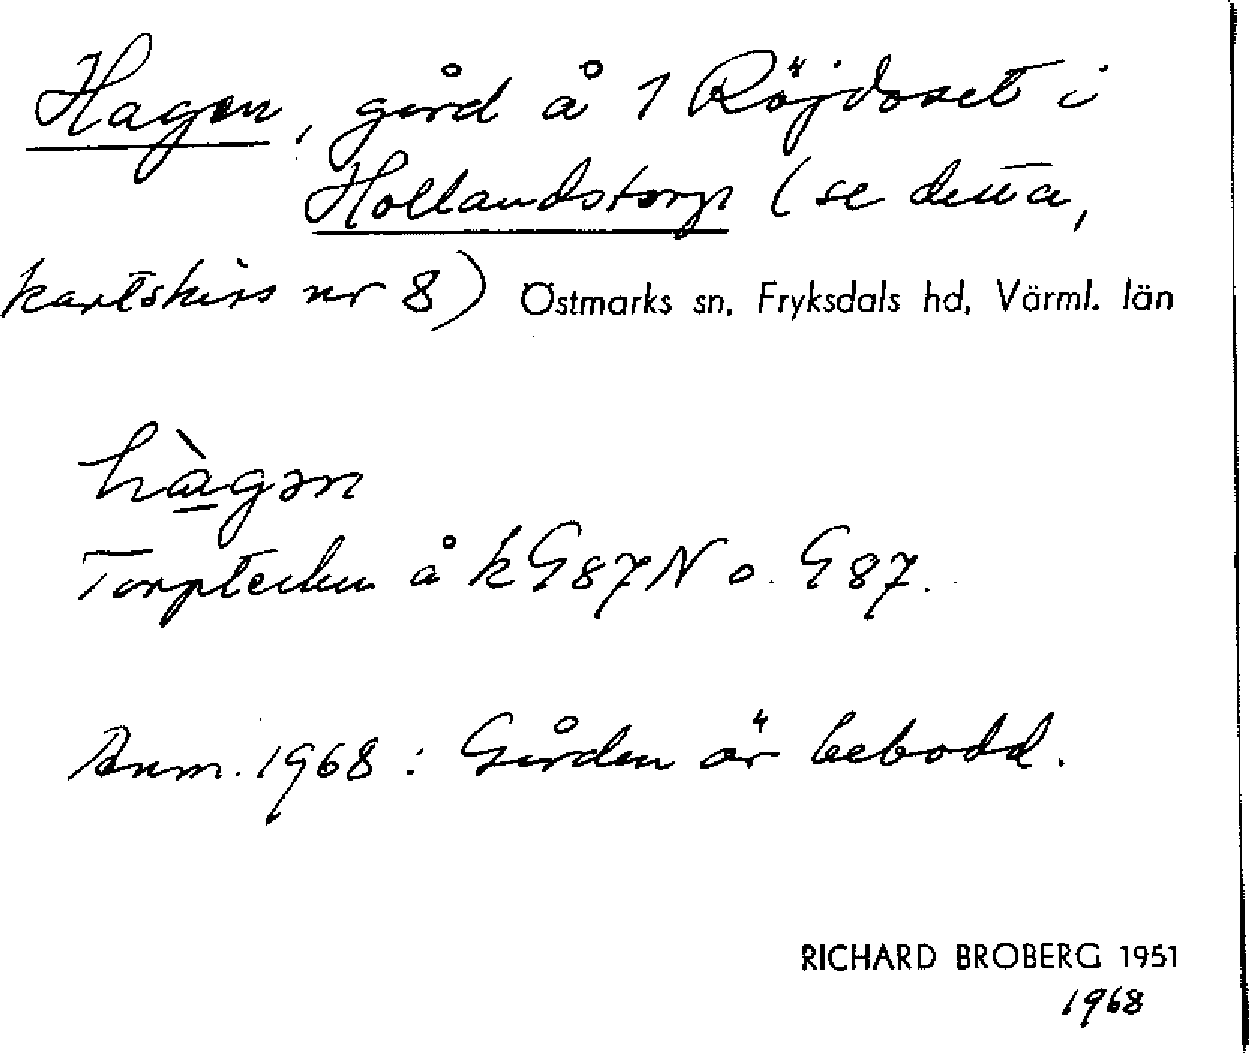 Hagen, gård å 1 Röjdoset i
Hollandstorp (se detta,
kartskiss nr 8) Östmarks sn, Fryksdals hd, Värml. län
hàgən
Torptecken å k G87N o. G87.
Anm. 1968: Gården är bebodd.
RICHARD BROBERG 1951
1968